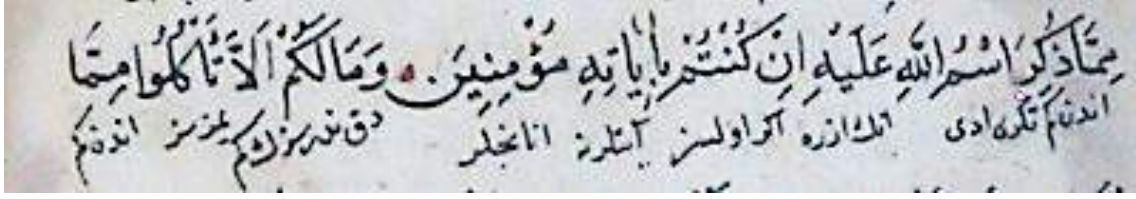 مِمَّا ذُكِرَ اسْمُ اللهِ عَلَيْهِ اِنْ كُنْتُمْ بِاٰيَاتِهِ مُؤْمِنِينَ وَمَا لَكُمْ اَلاَّ تَأْكُلُوا مِمَّا
اندن كم تكرى ادى انك ازره اكر اولسز آيتلرنه انانجلر دقى نه در سزك كم يمزسز اندن كم